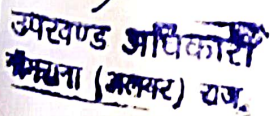 उपखण्ड अधिकारी
नीमराना (अलवर) राज.